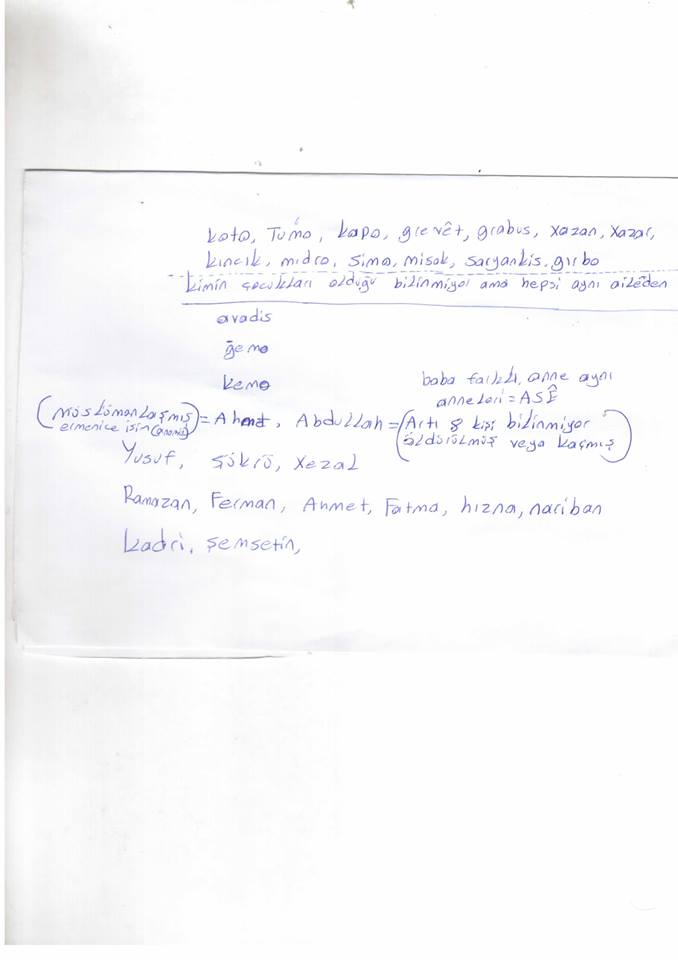 koto, Tumo, kapo, grevêt, grabus, xazan, xazar,
kıncik, mıdro, simo, misak, saryankis, gırbo
kimin çocukları olduğu bilinmiyor ama hepsi aynı aileden
avadis
ğemo
kemo
baba farklı, anne aynı
anneleri = ASÊ
(Müslümanlaşmış ermenice isin) = Ahmet, Abdullah = (Artı 8 kişi bilinmiyor
öldürülmüş veya kaçmış)
Yusuf, şükrü, xezal
Ramazan, Ferman, Ahmet, Fatma, hızna, nariban
kadri, şemsetin,